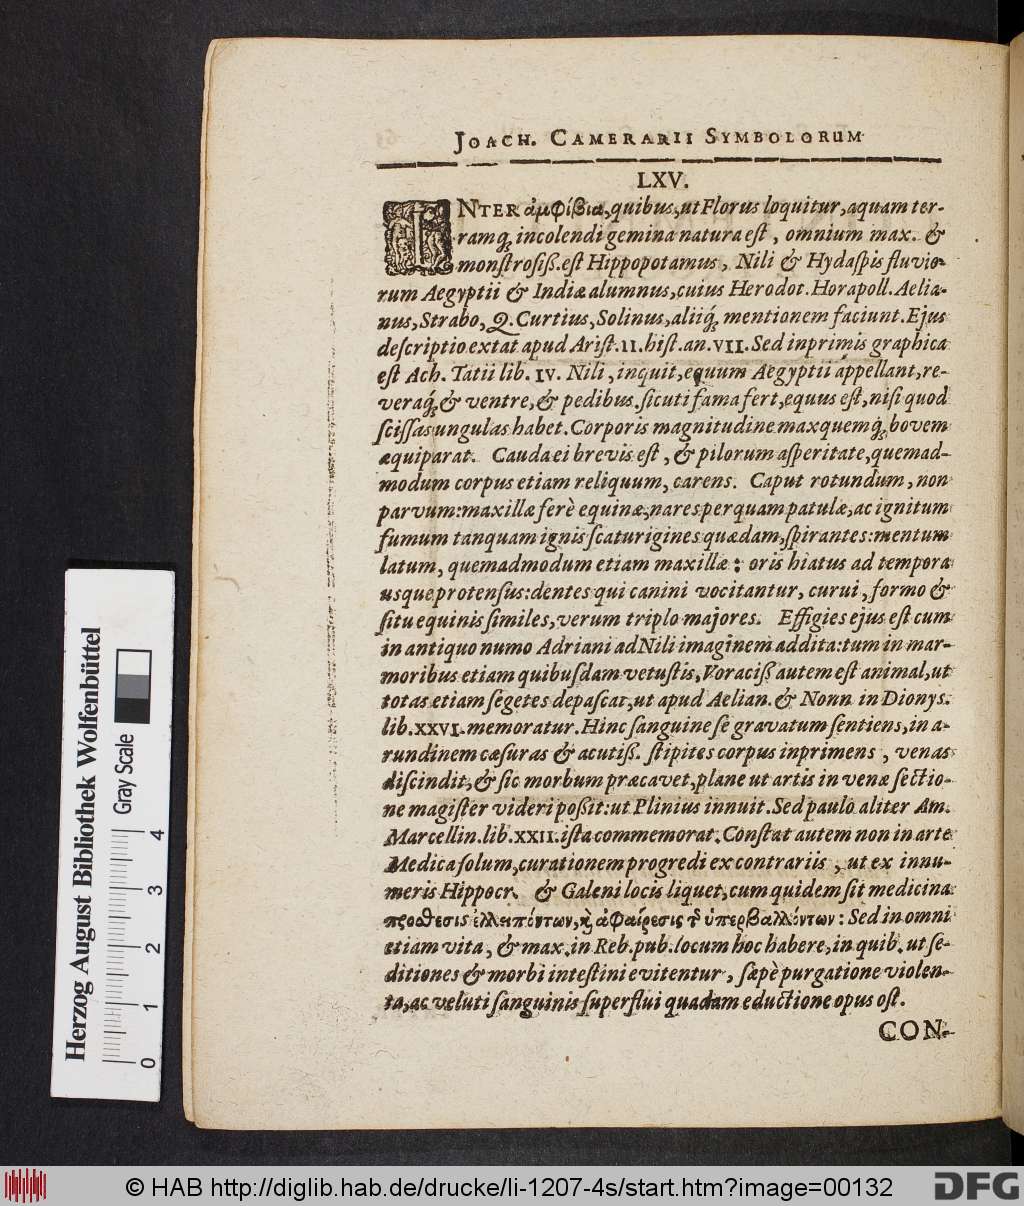 JOACH. CAMERARII SYMBOLORUM
LXV.
INTER ἀμφίβια, quibus, ut Florus loquitur, aquam ter-
ramq́; incolendi gemina natura est, omnium max. &
monstrosiß. est Hippopotamus, Nili & Hydaspis fluvio-
rum Aegyptii & Indiæ alumnus, cuius Herodot. Horapoll. Aelia-
nus, Strabo, Q. Curtius, Solinus, aliiq́; mentionem faciunt. Ejus
descriptio extat apud Arist. II. hist. an. VII. Sed inprimis graphica
est Ach. Tatii lib. IV. Nili, inquit, equum Aegyptii appellant, re-
veraq́; & ventre, & pedibus, sicuti fama fert, equus est, nisi quod
scissas ungulas habet. Corporis magnitudine maxquemq́; bovem
æquiparat. Cauda ei brevis est, & pilorum asperitate, quemad-
modum corpus etiam reliquum, carens. Caput rotundum, non
parvum: maxillæ ferè equinæ, nares perquam patulæ, ac ignitum
fumum tanquam ignis scaturigines quædam, spirantes: mentum
latum, quemadmodum etiam maxillæ: oris hiatus ad tempora
usque protensus: dentes qui canini vocitantur, curui, formo &
situ equinis similes, verum triplo majores. Effigies ejus est cum
in antiquo numo Adriani ad Nili imaginem addita: tum in mar-
moribus etiam quibusdam vetustis, Voraciß autem est animal, ut
totas etiam segetes depascat, ut apud Aelian. & Nonn in Dionys.
lib. XXVI. memoratur. Hinc sanguine se gravatum sentiens, in a-
rundinem cæsuras & acutiß. stipites corpus inprimens, venas
discindit, & sic morbum præcavet, plane ut artis in venæ sectio-
ne magister videri poßit: ut Plinius innuit. Sed paulo aliter Am.
Marcellin. lib. XXII. ista commemorat. Constat autem non in arte
Medica solum, curationem progredi ex contrariis, ut ex innu-
meris Hippocr. & Galeni locis liquet, cum quidem sit medicina
προσθεσις ἐλλειπόντων, ϗ ἀφαίρεσις τ ὑπερβαλλόντων: Sed in omni
etiam vita, & max. in Reb. pub. locum hoc habere, in quib. ut se-
ditiones & morbi intestini evitentur, sæpè purgatione violen-
ta, ac veluti sanguinis superflui quadam eductione opus ost.
CON-
Herzog August Bibliothek Wolfenbüttel
Gray Scale
0 1 2 3 4
© HAB http://diglib.hab.de/drucke/li-1207-4s/start.htm?image=00132
DFG